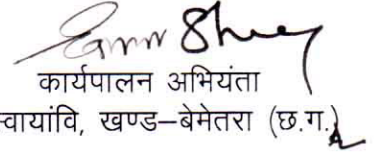 कार्यपालन अभियंता
स्वायांवि, खण्ड–बेमेतरा (छ.ग.)